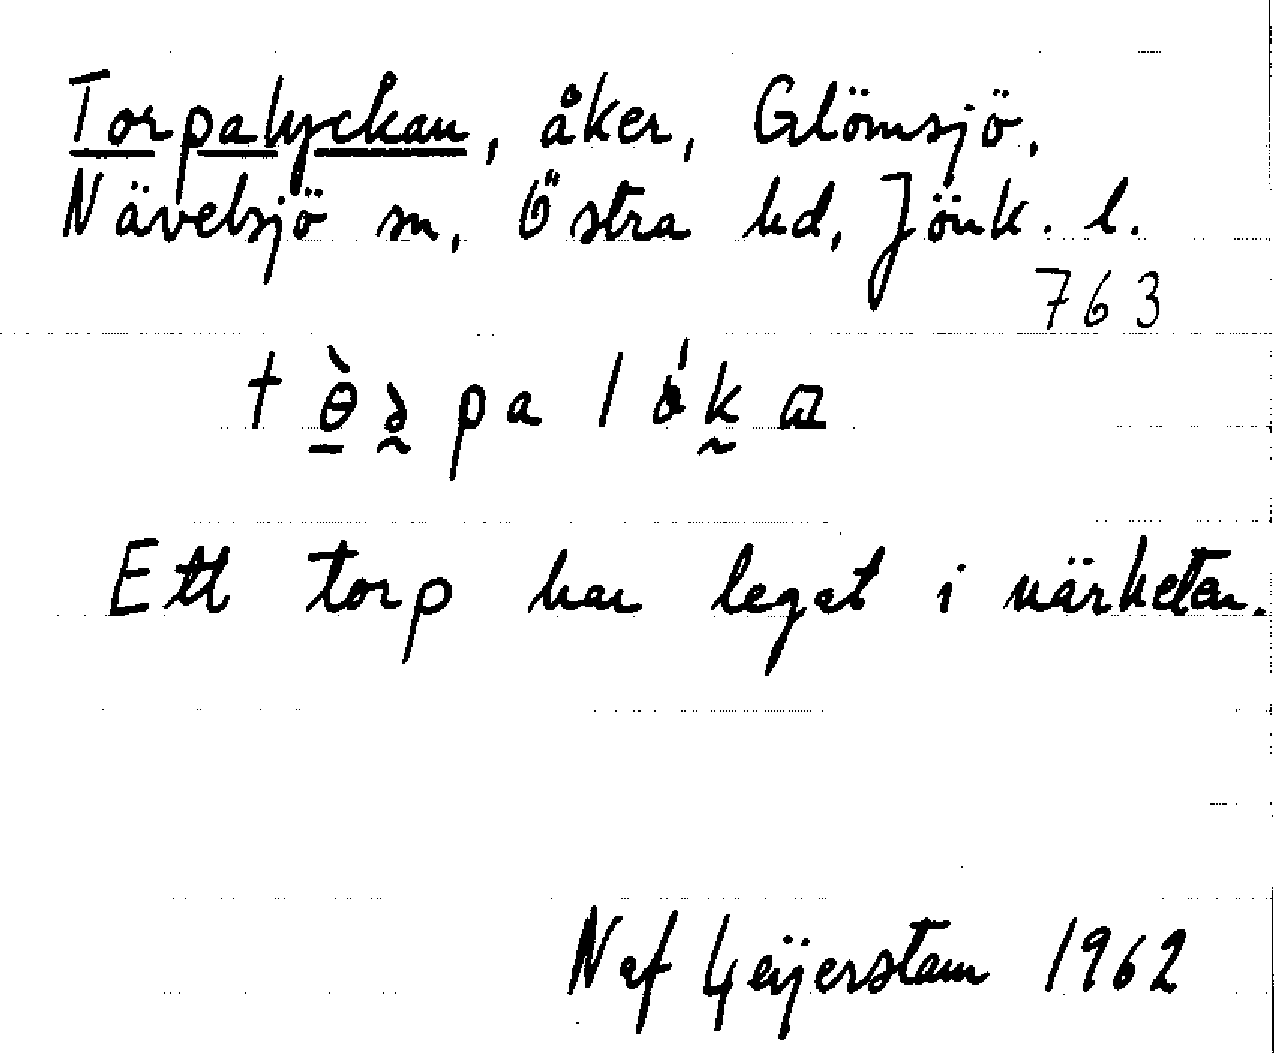 Torpalyckan, åker, Glömsjö,
Nävelsjö sn, Östra hd, Jönk. l.
763
Ett torp har legat i närheten.
N af Geijerstam 1962